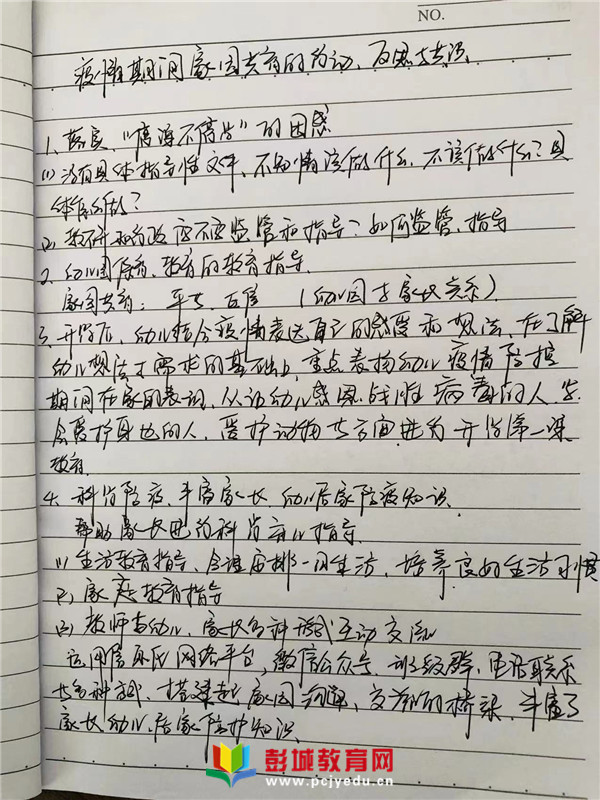 NO.
疫情期间家园共育的行动、反思与共识
1、落实“停课不停学”的困惑
(1) 没有具体指导性文件、不知情该做什么、不该做什么？具
体怎么做？
(2) 教研和行政要不要监管和指导？如何监管、指导
2、幼儿园保育、教育的教育指导、
家园共育：平等、互信 (幼儿园与家长关系)
3、开学后，幼儿结合疫情表达自己的感受和想法，在了解
幼儿想法与需求的基础上，重点表扬幼儿疫情防控
期间在家的表现，从让幼儿感恩战胜病毒的人、学
会爱护身边的人、爱护动物等方面进行开学第一课
教育
4、科学防疫、丰富家长、幼儿居家防疫知识、
帮助家长进行科学育儿指导
(1) 生活教育指导、合理安排一日生活，培养良好生活习惯
(2) 家庭教育指导
(3) 教师与幼儿、家长多种形式互动交流
运用信息化网络平台，微信公众号、班级群、电话联系
等多种形式、搭建起家园沟通、交流的桥梁，丰富了
家长、幼儿、居家防护知识
彭城教育网
www.pcjyedu.cn